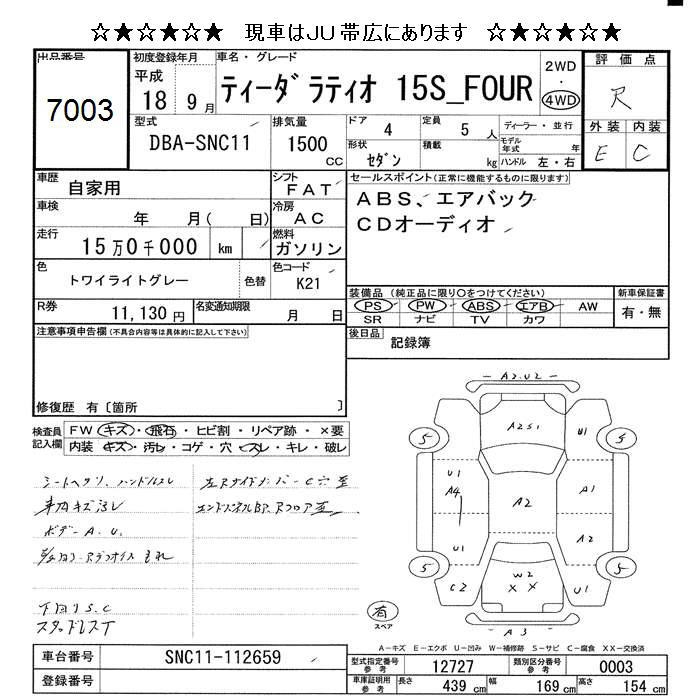 ☆★☆★☆★ 現車はJU帯広にあります ☆★☆★☆★
出品番号
7003
初度登録年月
平成
18 9月
車名・グレード
ティーダ ラティオ 15S_FOUR
2WD
・
4WD
評価点
R
外装 内装
E C
型式
DBA-SNC11
排気量
1500
CC
ドア 4
形状 セダン
定員 5 人
積載 kg
ディーラー・並行
モデル年式 年
ハンドル 左・右
車歴 自家用
シフト FAT
車検 年 月( 日)
冷房 AC
走行 15万0千000 km
燃料 ガソリン
色 トワイライトグレー 色替
色コード K21
R券 11,130円
名変通知期限 月 日
セールスポイント(正常に機能するものに限ります)
ABS、エアバック
CDオーディオ
装備品 (純正品に限り○をつけてください)
PS PW ABS エアB AW
SR ナビ TV カワ
新車保証書
有・無
後日品 記録簿
注意事項申告欄(不具合内容等は具体的に記入して下さい)
修復歴 有〔箇所 〕
検査員記入欄
FW キズ・飛石・ヒビ割・リペア跡・×要
内装 キズ・汚レ・コゲ・穴・スレ・キレ・破レ
シートヘタリ、ハンドルスレ
車内キズ汚レ
ボデーA.U.
下回りS.C
スタッドレスT
A2.U2
A2S1
U1
5
5
U1
A4
A2
A1
U1
A2
5
5
C2
W2
XX
U1
A3
有
スペア
A-キズ E-エクボ U-凹み W-補修跡 S-サビ C-腐食 XX-交換済
車台番号 SNC11-112659
登録番号
型式指定番号 参考 12727
類別区分番号 参考 0003
車庫証明用 参考 長さ 439 cm 幅 169 cm 高さ 154 cm